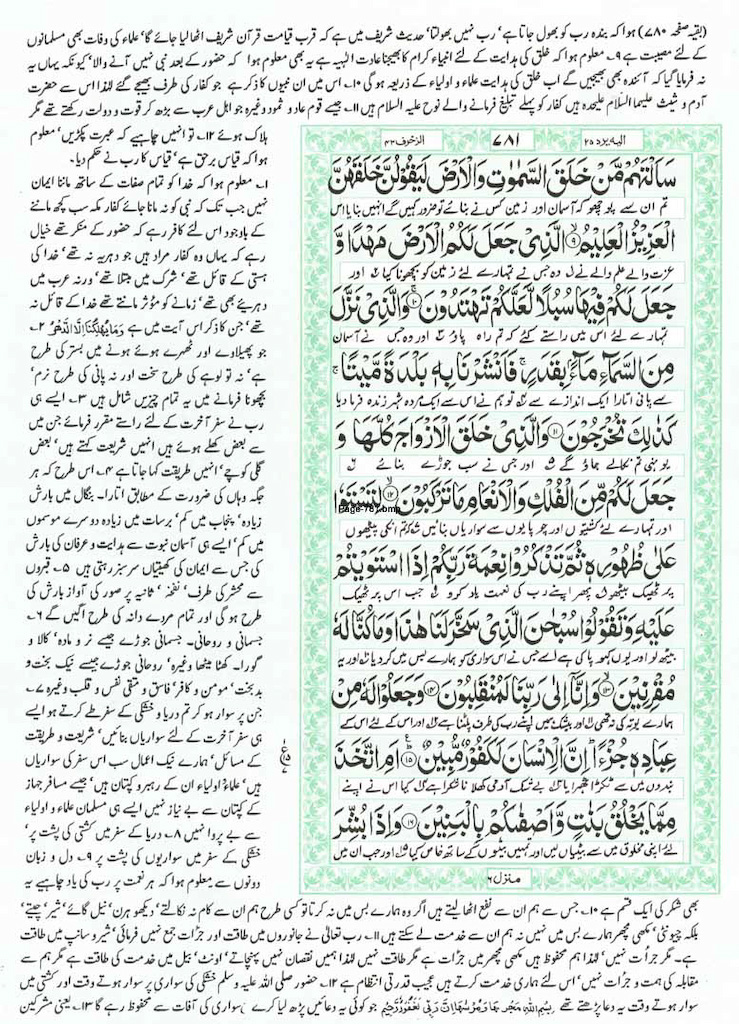 (بقیہ صفحہ ۷۸۰) ہوا کہ بندہ رب کو بھول جاتا ہے، رب نہیں بھولتا، حدیث شریف میں ہے کہ قرب قیامت قرآن شریف اٹھا لیا جائے گا، علماء کی وفات بھی مسلمانوں
کے لئے مصیبت ہے ۹۔ معلوم ہوا کہ خلق کی ہدایت کے لئے انبیاء کرام کا بھیجنا عادت الہیہ ہے یہ بھی معلوم ہوا کہ حضور کے بعد نبی نہیں آنے والا، کیونکہ یہاں یہ
نہ فرمایا گیا کہ آئندہ بھی بھیجیں گے اب خلق کی ہدایت علماء و اولیاء کے ذریعہ ہو گی ۱۰۔ اس میں ان نبیوں کا ذکر ہے جو کفار کی طرف بھیجے گئے لہٰذا اس سے حضرت
آدم و شیث علیہما السلام علیحدہ ہیں کفار کو پہلے تبلیغ فرمانے والے نوح علیہ السلام ہیں ۱۱۔ جیسے قوم عاد و ثمود وغیرہ جو اہل عرب سے بڑھ کر قوت و دولت رکھتے تھے مگر
ہلاک ہوئے ۱۲۔ تو انہیں چاہیے کہ عبرت پکڑیں، معلوم
ہوا کہ قیاس برحق ہے، قیاس کا رب نے حکم دیا۔
۱۔ معلوم ہوا کہ خدا کو تمام صفات کے ساتھ ماننا ایمان
نہیں جب تک کہ نبی کو نہ مانا جائے کفار مکہ سب کچھ ماننے
کے باوجود اس لئے کافر رہے کہ حضور کے منکر تھے خیال
رہے کہ یہاں وہ کفار مراد ہیں جو دہریہ نہ تھے، خدا کی
ہستی کے قائل تھے، شرک میں مبتلا تھے، ورنہ عرب میں
دہریے بھی تھے، زمانے کو مؤثر مانتے تھے خدا کے قائل نہ
تھے، جن کا ذکر اس آیت میں ہے وَمَا يُهْلِكُنَا إِلَّا الدَّهْرُ ۲۔
جو پھیلاوے اور ٹھہرے ہوئے ہونے میں بستر کی طرح
ہے، نہ تو لوہے کی طرح سخت اور نہ پانی کی طرح نرم،
بچھونا فرمانے میں یہ تمام چیزیں شامل ہیں ۳۔ ایسے ہی
رب نے سفر آخرت کے لئے راستے مقرر فرمائے جن میں
سے بعض کھلے ہوئے ہیں انہیں شریعت کہتے ہیں، بعض
گلی کوچے، انہیں طریقت کہا جاتا ہے ۴۔ اس طرح کہ ہر
جگہ وہاں کی ضرورت کے مطابق اتارا۔ بنگال میں بارش
زیادہ، پنجاب میں کم، برسات میں زیادہ دوسرے موسموں
میں کم، ایسے ہی آسمان نبوت سے ہدایت و عرفان کی بارش
کی جس سے ایمان کی کھیتیاں سرسبز رہتی ہیں ۵۔ قبروں
سے محشر کی طرف، نفخہ ثانیہ پر صور کی آواز بارش کی
طرح ہو گی اور تمام مردے دانہ کی طرح اگیں گے ۶۔
جسمانی و روحانی۔ جسمانی جوڑے جیسے نر و مادہ، کالا و
گورا۔ کھٹا میٹھا وغیرہ، روحانی جوڑے جیسے نیک بخت و
بدبخت، مومن و کافر، فاسق و متقی نفس و قلب وغیرہ ۷۔
جن پر سوار ہو کر تم دریا و خشکی کے سفر طے کرتے ہو ایسے
ہی سفر آخرت کے لئے سواریاں بنائیں، شریعت و طریقت
کے مسائل، ہمارے نیک اعمال سب اس سفر کی سواریاں
ہیں، علماء، اولیاء ان کے رہبر و کپتان ہیں، جیسے مسافر جہاز
کے کپتان سے بے نیاز نہیں ایسے ہی مسلمان علماء و اولیاء
سے بے پروا نہیں ۸۔ دریا کے سفر میں کشتی کی پشت پر،
خشکی کے سفر میں سواریوں کی پشت پر ۹۔ دل و زبان
دونوں سے معلوم ہوا کہ ہر نعمت پر رب کی یاد چاہیے یہ
الیہ یرد ۲۵ ۷۸۱ الزخرف ۴۳
سَاَلْتَهُمْ مَّنْ خَلَقَ السَّمٰوٰتِ وَالْاَرْضَ لَيَقُوْلُنَّ خَلَقَهُنَّ
تم ان سے پوچھو کہ آسمان اور زمین کس نے بنائے تو ضرور کہیں گے انہیں بنایا اس
الْعَزِيْزُ الْعَلِيْمُ ۙ۹ الَّذِيْ جَعَلَ لَكُمُ الْاَرْضَ مَهْدًا وَّ
عزت والے علم والے نے وہ جس نے تمہارے لئے زمین کو بچھونا کیا اور
جَعَلَ لَكُمْ فِيْهَا سُبُلًا لَّعَلَّكُمْ تَهْتَدُوْنَ ۚ۱۰ وَالَّذِيْ نَزَّلَ
تمہارے لئے اس میں راستے کئے کہ تم راہ پاؤ اور وہ جس نے آسمان
مِنَ السَّمَآءِ مَآءًۢ بِقَدَرٍ ۚ فَاَنْشَرْنَا بِهٖ بَلْدَةً مَّيْتًا ۚ
سے پانی اتارا ایک اندازے سے تو ہم نے اس سے ایک مردہ شہر زندہ فرما دیا
كَذٰلِكَ تُخْرَجُوْنَ ۱۱ وَالَّذِيْ خَلَقَ الْاَزْوَاجَ كُلَّهَا وَ
یونہی تم نکالے جاؤ گے اور جس نے سب جوڑے بنائے
جَعَلَ لَكُمْ مِّنَ الْفُلْكِ وَالْاَنْعَامِ مَا تَرْكَبُوْنَ ۙ۱۲ لِتَسْتَوٗا
Page-781.bmp
اور تمہارے لئے کشتیوں اور چوپایوں سے سواریاں بنائیں کہ تم انکی پیٹھوں
عَلٰى ظُهُوْرِهٖ ثُمَّ تَذْكُرُوْا نِعْمَةَ رَبِّكُمْ اِذَا اسْتَوَيْتُمْ
پر ٹھیک بیٹھو پھر اپنے رب کی نعمت یاد کرو جب اس پر ٹھیک
عَلَيْهِ وَتَقُوْلُوْا سُبْحٰنَ الَّذِيْ سَخَّرَ لَنَا هٰذَا وَمَا كُنَّا لَهٗ
بیٹھ لو اور یوں کہو پاکی ہے اسے جس نے اس سواری کو ہمارے بس میں کر دیا اور یہ
مُقْرِنِيْنَ ۙ۱۳ وَاِنَّآ اِلٰى رَبِّنَا لَمُنْقَلِبُوْنَ ۱۴ وَجَعَلُوْا لَهٗ مِنْ
ہمارے بوتہ کی نہ تھی اور بیشک ہمیں اپنے رب کی طرف پلٹنا ہے اور اس کے لئے اس کے
عِبَادِهٖ جُزْءًا ؕ اِنَّ الْاِنْسَانَ لَكَفُوْرٌ مُّبِيْنٌ ؕ۱۵ اَمِ اتَّخَذَ
بندوں میں سے ٹکڑا ٹھہرایا بے شک آدمی کھلا ناشکرا ہے کیا اس نے اپنے
مِمَّا يَخْلُقُ بَنٰتٍ وَّاَصْفٰىكُمْ بِالْبَنِيْنَ ۱۶ وَاِذَا بُشِّرَ
لئے اپنی مخلوق میں سے بیٹیاں لیں اور تمہیں بیٹوں کے ساتھ خاص کیا اور جب ان میں
منزل ۶
بھی شکر کی ایک قسم ہے ۱۰۔ جس سے ہم ان سے نفع اٹھا لیتے ہیں اگر وہ ہمارے بس میں نہ کرتا تو کسی طرح ہم ان سے کام نہ نکالتے، دیکھو ہرن، نیل گائے، شیر، چیتے،
بلکہ چیونٹی، مکھی مچھر ہمارے بس میں نہیں نہ ہم ان سے خدمت لے سکتے ہیں ۱۱۔ رب تعالیٰ نے جانوروں میں طاقت اور جرات جمع نہیں فرمائی، شیر و سانپ میں طاقت
ہے۔ مگر جرات نہیں، لہٰذا ہم محفوظ ہیں مکھی مچھر میں جرات ہے مگر طاقت نہیں لہٰذا ہمیں نقصان نہیں پہنچاتے، اونٹ، بیل میں خدمت کی طاقت ہے مگر ہم سے
مقابلہ کی ہمت و جرات نہیں، اس لئے ہماری خدمت کرتے ہیں عجیب قدرتی انتظام ہے ۱۲۔ حضور صلی اللہ علیہ وسلم خشکی کی سواری پر سوار ہوتے وقت اور کشتی میں
سوار ہوتے وقت یہ دعا پڑھتے تھے بِسْمِ اللّٰهِ مَجْرٖىهَا وَمُرْسٰىهَا اِنَّ رَبِّيْ لَغَفُوْرٌ رَّحِيْمٌ جو کوئی یہ دعائیں پڑھ لیا کرے سواری کی آفات سے محفوظ رہے گا ۱۳۔ یعنی مشرکین